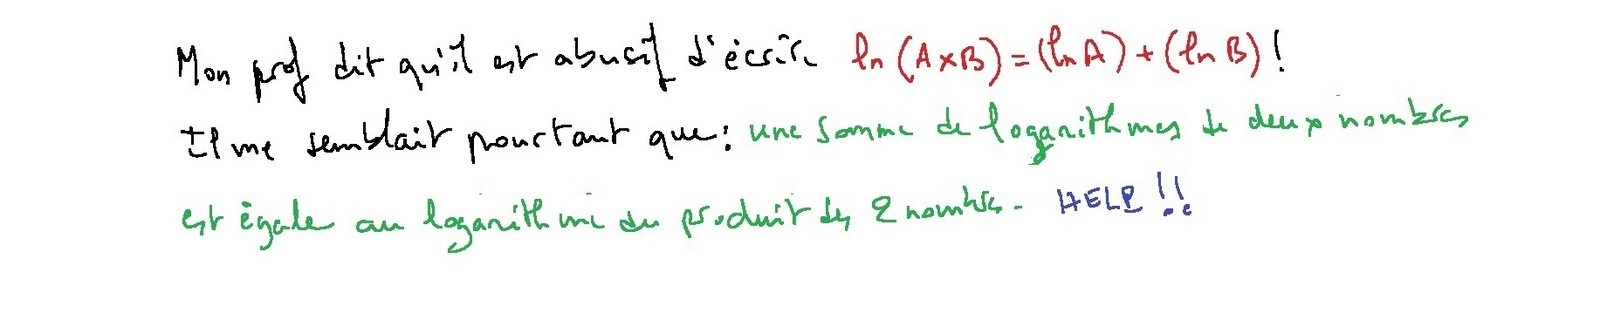 Mon prof dit qu'il est abusif d'écrire ln (A×B) = (ln A) + (ln B) !
Il me semblait pourtant que : une somme de logarithmes de deux nombres
est égale au logarithme du produit des 2 nombres. HELP !!